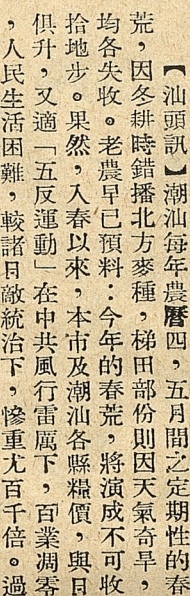 【汕頭訊】潮汕每年農曆四，五月間之定期性的春
荒，因冬耕時錯播北方麥種，梯田部份則因天氣奇旱，
均各失收。老農早已預料：今年的春荒，將演成不可收
拾地步。果然，入春以來，本市及潮汕各縣糧價，與日
俱升，又適「五反運動」在中共風行雷厲下，百業凋零
，人民生活困難，較諸日敵統治下，慘重尤百千倍。過